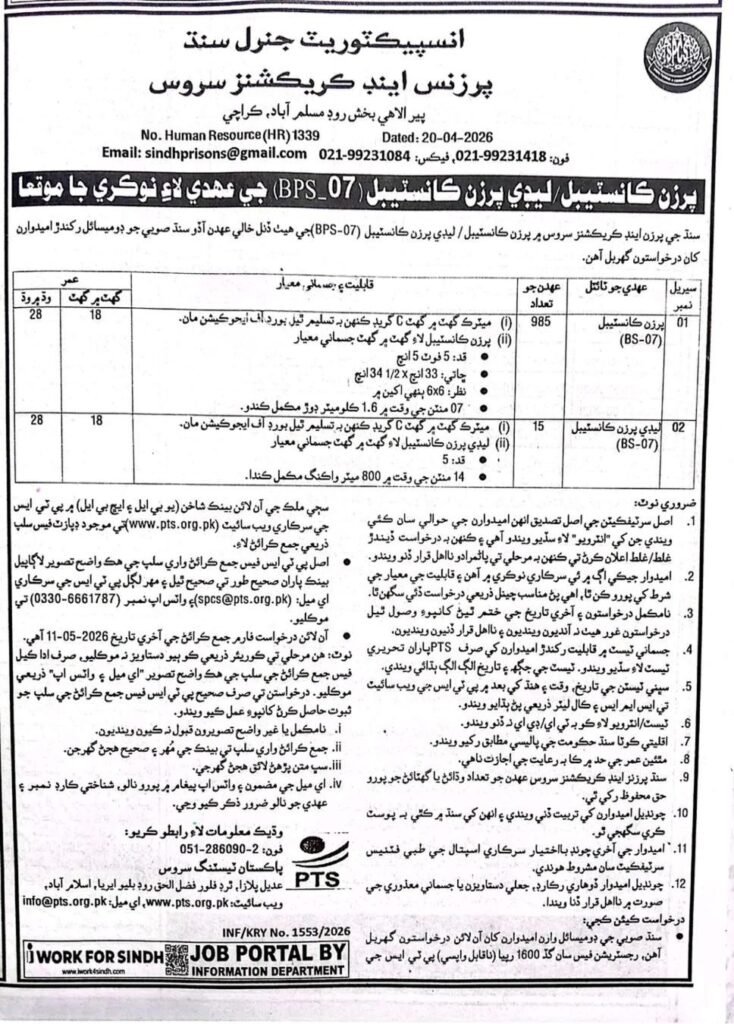 انسپيڪٽوريٽ جنرل سنڌ
پرزنس اينڊ ڪريڪشنز سروس
پير الاهي بخش روڊ مسلم آباد، ڪراچي
No. Human Resource (HR) 1339 Dated: 20-04-2026
Email: sindhprisons@gmail.com فون: 021-99231418، فيڪس: 021-99231084
پرزن ڪانسٽيبل/ ليڊي پرزن ڪانسٽيبل (BPS_07) جي عهدي لاءِ نوڪري جا موقعا
سنڌ جي پرزن اينڊ ڪريڪشنز سروس ۾ پرزن ڪانسٽيبل/ ليڊي پرزن ڪانسٽيبل (BPS-07) جي هيٺ ڏنل خالي عهدن آڏو سنڌ صوبي جو ڊوميسائل رکندڙ اميدوارن
کان درخواستون گهربل آهن.
سيريل نمبر عهدي جو ٽائٽل عهدن جو تعداد قابليت ۽ جسماني معيار عمر
گهٽ ۾ گهٽ وڌ ۾ وڌ
01 پرزن ڪانسٽيبل (BS-07) 985 (i) ميٽرڪ گهٽ ۾ گهٽ C گريڊ ڪنهن به تسليم ٿيل بورڊ آف ايجوڪيشن مان. 18 28
(ii) پرزن ڪانسٽيبل لاءِ گهٽ ۾ گهٽ جسماني معيار
● قد: 5 فوٽ 5 انچ
● ڇاتي: 33 انچ x 34 1/2 انچ
● نظر: 6x6 ٻنهي اکين ۾
● 07 منٽن جي وقت ۾ 1.6 ڪلوميٽر ڊوڙ مڪمل ڪندو.
02 ليڊي پرزن ڪانسٽيبل (BS-07) 15 (i) ميٽرڪ گهٽ ۾ گهٽ C گريڊ ڪنهن به تسليم ٿيل بورڊ آف ايجوڪيشن مان. 18 28
(ii) ليڊي پرزن ڪانسٽيبل لاءِ گهٽ ۾ گهٽ جسماني معيار
● قد: 5
● 14 منٽن جي وقت ۾ 800 ميٽر واڪنگ مڪمل ڪندا.
ضروري نوٽ:
1. اصل سرٽيفڪيٽن جي اصل تصديق انهن اميدوارن جي حوالي سان ڪئي
ويندي جن کي "انٽرويو" لاءِ سڏيو ويندو آهي ۽ ڪنهن به درخواست ڏيندڙ
غلط/غلط اعلان ڪرڻ تي ڪنهن به مرحلي تي پاڻمرادو نااهل قرار ڏنو ويندو.
2. اميدوار جيڪي اڳ ۾ ئي سرڪاري نوڪري ۾ آهن ۽ قابليت جي معيار جي
شرط کي پورو ڪن ٿا، اهي پڻ مناسب چينل ذريعي درخواست ڏئي سگهن ٿا.
3. نامڪمل درخواستون ۽ آخري تاريخ جي ختم ٿيڻ کانپوءِ وصول ٿيل
درخواستون غور هيٺ نه آنديون وينديون ۽ نااهل قرار ڏنيون وينديون.
4. جسماني ٽيسٽ ۾ قابليت رکندڙ اميدوارن کي صرف PTS پاران تحريري
ٽيسٽ لاءِ سڏيو ويندو. ٽيسٽ جي جڳهه ۽ تاريخ الڳ الڳ ٻڌائي ويندي.
5. سڀني ٽيسٽن جي تاريخ، وقت ۽ هنڌ کي بعد ۾ پي ٽي ايس جي ويب سائيٽ
تي ايس ايم ايس ۽ ڪال ليٽر ذريعي پڻ ٻڌايو ويندو.
6. ٽيسٽ/انٽرويو لاءِ ڪو به ٽي اي/ڊي اي نه ڏنو ويندو.
7. اقليتي ڪوٽا سنڌ حڪومت جي پاليسي مطابق رکيو ويندو.
8. مٿئين عمر جي حد ۾ ڪا به رعايت جي اجازت ناهي.
9. سنڌ پرزنز اينڊ ڪريڪشنز سروس عهدن جو تعداد وڌائڻ يا گهٽائڻ جو پورو
حق محفوظ رکي ٿي.
10. چونڊيل اميدوارن کي تربيت ڏني ويندي ۽ انهن کي سنڌ ۾ ڪٿي به پوسٽ
ڪري سگهجي ٿو.
11. اميدوار جي آخري چونڊ بااختيار سرڪاري اسپتال جي طبي فٽنيس
سرٽيفڪيٽ سان مشروط هوندي.
12. چونڊيل اميدوار ڏوهاري رڪارڊ، جعلي دستاويزن يا جسماني معذوري جي
صورت ۾ نااهل قرار ڏنا ويندا.
درخواست ڪيئن ڪجي:
● سنڌ صوبي جي ڊوميسائل وارن اميدوارن کان آن لائن درخواستون گهربل
آهن، رجسٽريشن فيس سان گڏ 1600 رپيا (ناقابل واپسي) پي ٽي ايس جي
سڄي ملڪ جي آن لائن بينڪ شاخن (يو بي ايل ۽ ايڇ بي ايل) ۾ پي ٽي ايس
جي سرڪاري ويب سائيٽ (www.pts.org.pk) تي موجود ڊپازٽ فيس سلپ
ذريعي جمع ڪرائڻ لاءِ.
● اصل پي ٽي ايس فيس جمع ڪرائڻ واري سلپ جي هڪ واضح تصوير لاڳاپيل
بينڪ پاران صحيح طور تي صحيح ٿيل ۽ مهر لڳل پي ٽي ايس جي سرڪاري
اي ميل: (spcs@pts.org.pk) ۽ واٽس اپ نمبر (0330-6661787) تي
موڪليو.
● آن لائن درخواست فارم جمع ڪرائڻ جي آخري تاريخ 11-05-2026 آهي.
نوٽ: هن مرحلي تي ڪوريئر ذريعي ڪو ٻيو دستاويز نه موڪليو، صرف ادا ڪيل
فيس جمع ڪرائڻ جي سلپ جي هڪ واضح تصوير "اي ميل ۽ واٽس اپ" ذريعي
موڪليو. درخواستن تي صرف صحيح پي ٽي ايس فيس جمع ڪرائڻ جي سلپ جو
ثبوت حاصل ڪرڻ کانپوءِ عمل ڪيو ويندو.
i. نامڪمل يا غير واضح تصويرون قبول نه ڪيون وينديون.
ii. جمع ڪرائڻ واري سلپ تي بينڪ جي مُهر ۽ صحيح هجڻ گهرجن.
iii. سڀ متن پڙهڻ لائق هجڻ گهرجي.
iv. اي ميل جي مضمون ۽ واٽس اپ پيغام ۾ پورو نالو، شناختي ڪارڊ نمبر ۽
عهدي جو نالو ضرور ذڪر ڪيو وڃي.
وڌيڪ معلومات لاءِ رابطو ڪريو:
فون: 051-286090-2
پاڪستان ٽيسٽنگ سروس
عديل پلازا، ٿرڊ فلور فضل الحق روڊ بليو ايريا، اسلام آباد.
ويب سائيٽ: www.pts.org.pk، اي ميل: info@pts.org.pk
PTS
INF/KRY No. 1553/2026
i WORK FOR SINDH
www.iwork4sindh.com
JOB PORTAL BY
INFORMATION DEPARTMENT